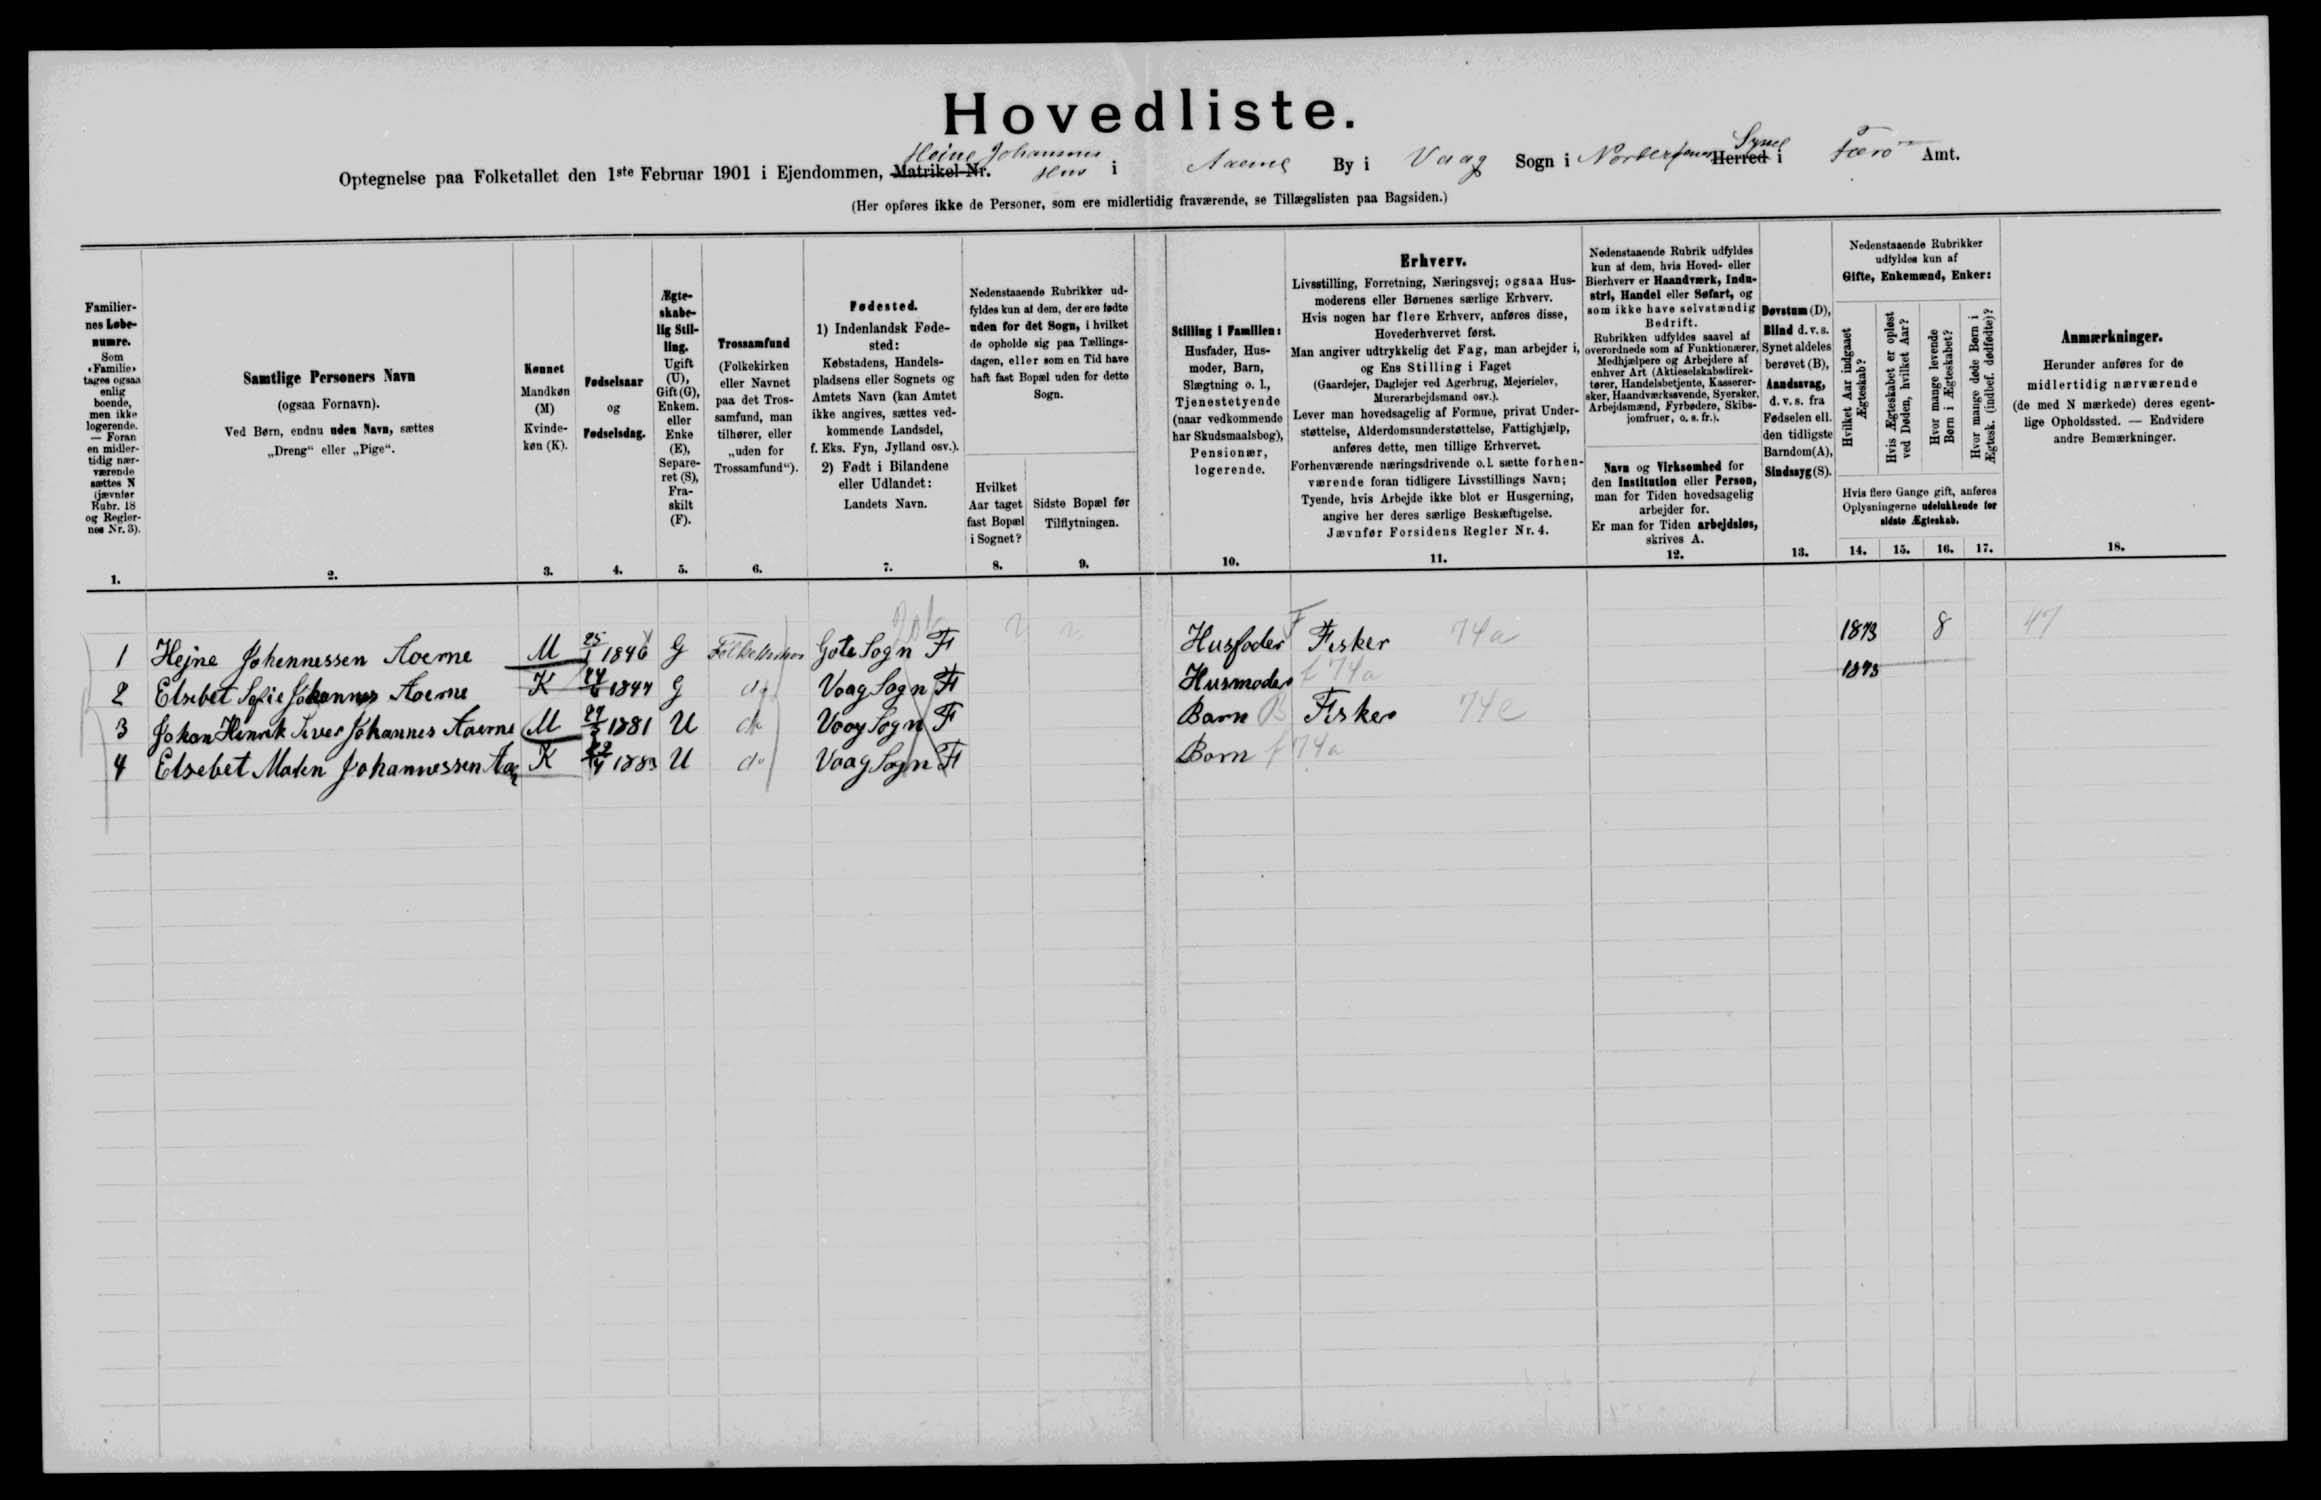 Hovedliste.
Optegnelse paa Folketallet den 1ste Februar 1901 i Ejendommen, Matrikel-Nr. Heine Johannes Hus i Aaerne By i Vaag Sogn i Norderøernes Herred Syssel i Færø Amt.
(Her opføres ikke de Personer, som ere midlertidig fraværende, se Tillægslisten paa Bagsiden.)
Familiernes Løbenumre.
Som «Familie» tages ogsaa enlig boende, men ikke logerende. — Foran en midlertidig nærværende sættes N (jævnfør Rubr. 18 og Reglernes Nr. 3).
1.
Samtlige Personers Navn
(ogsaa Fornavn).
Ved Børn, endnu uden Navn, sættes
„Dreng“ eller „Pige“.
2.
Kønnet
Mandkøn (M)
Kvindekøn (K).
3.
Fødselsaar
og
Fødselsdag.
4.
Ægteskabelig Stilling.
Ugift (U), Gift (G), Enkem. eller Enke (E), Separeret (S), Fraskilt (F).
5.
Trossamfund
(Folkekirken eller Navnet paa det Trossamfund, man tilhører, eller „uden for Trossamfund“).
6.
Fødested.
1) Indenlandsk Fødested:
Købstadens, Handelspladsens eller Sognets og Amtets Navn (kan Amtet ikke angives, sættes vedkommende Landsdel, f. Eks. Fyn, Jylland osv.).
2) Født i Bilandene eller Udlandet:
Landets Navn.
7.
Nedenstaaende Rubrikker udfyldes kun af dem, der ere fødte uden for det Sogn, i hvilket de opholde sig paa Tællingsdagen, eller som en Tid have haft fast Bopæl uden for dette Sogn.
Hvilket Aar taget fast Bopæl i Sognet?
8.
Sidste Bopæl før Tilflytningen.
9.
Stilling i Familien:
Husfader, Husmoder, Barn, Slægtning o. l., Tjenestetyende (naar vedkommende har Skudsmaalsbog), Pensionær, logerende.
10.
Erhverv.
Livsstilling, Forretning, Næringsvej; ogsaa Husmoderens eller Børnenes særlige Erhverv.
Hvis nogen har flere Erhverv, anføres disse, Hovederhvervet først.
Man angiver udtrykkelig det Fag, man arbejder i, og Ens Stilling i Faget
(Gaardejer, Daglejer ved Agerbrug, Mejerielev, Murerarbejdsmand osv.).
Lever man hovedsagelig af Formue, privat Understøttelse, Alderdomsunderstøttelse, Fattighjælp, anføres dette, men tillige Erhvervet.
Forhenværende næringsdrivende o. l. sætte forhenværende foran tidligere Livsstillings Navn;
Tyende, hvis Arbejde ikke blot er Husgerning, angive her deres særlige Beskæftigelse.
Jævnfør Forsidens Regler Nr. 4.
11.
Nedenstaaende Rubrik udfyldes kun af dem, hvis Hoved- eller Bierhverv er Haandværk, Industri, Handel eller Søfart, og som ikke have selvstændig Bedrift.
Rubrikken udfyldes saavel af overordnede som af Funktionærer, Medhjælpere og Arbejdere af enhver Art (Aktieselskabsdirektører, Handelsbetjente, Kasserersker, Haandværkssvende, Syersker, Arbejdsmænd, Fyrbødere, Skibsjomfruer, o. s. fr.).
Navn og Virksomhed for den Institution eller Person, man for Tiden hovedsagelig arbejder for.
Er man for Tiden arbejdsløs, skrives A.
12.
Døvstum (D), Blind d. v. s. Synet aldeles berøvet (B), Aandssvag, d. v. s. fra Fødselen ell. den tidligste Barndom (A), Sindssyg (S).
13.
Nedenstaaende Rubrikker udfyldes kun af
Gifte, Enkemænd, Enker:
Hvilket Aar indgaaet Ægteskab?
Hvis Ægteskabet er opløst ved Døden, hvilket Aar?
Hvor mange levende Børn i Ægteskabet?
Hvor mange døde Børn i Ægtesk. (indbef. dødfødte)?
Hvis flere Gange gift, anføres Oplysningerne udelukkende for sidste Ægteskab.
14. 15. 16. 17.
Anmærkninger.
Herunder anføres for de midlertidig nærværende (de med N mærkede) deres egentlige Opholdssted. — Endvidere andre Bemærkninger.
18.
1 Hejne Johennessen Aoerne M 25/1 1846 G Folkekirken Gote Sogn F Husfader F Fisker 74a 1873 8 47
2 Elsebet Sofie Johannes Aoerne K 1844 G do Vaag Sogn F Husmoder f 74a 1873
3 Johan Henrik Johannes Aaerne M 1881 U do Vaag Sogn F Barn B Fisker 74e
4 Elsebet Malen Johannessen K 1883 U do Vaag Sogn F Barn f 74a